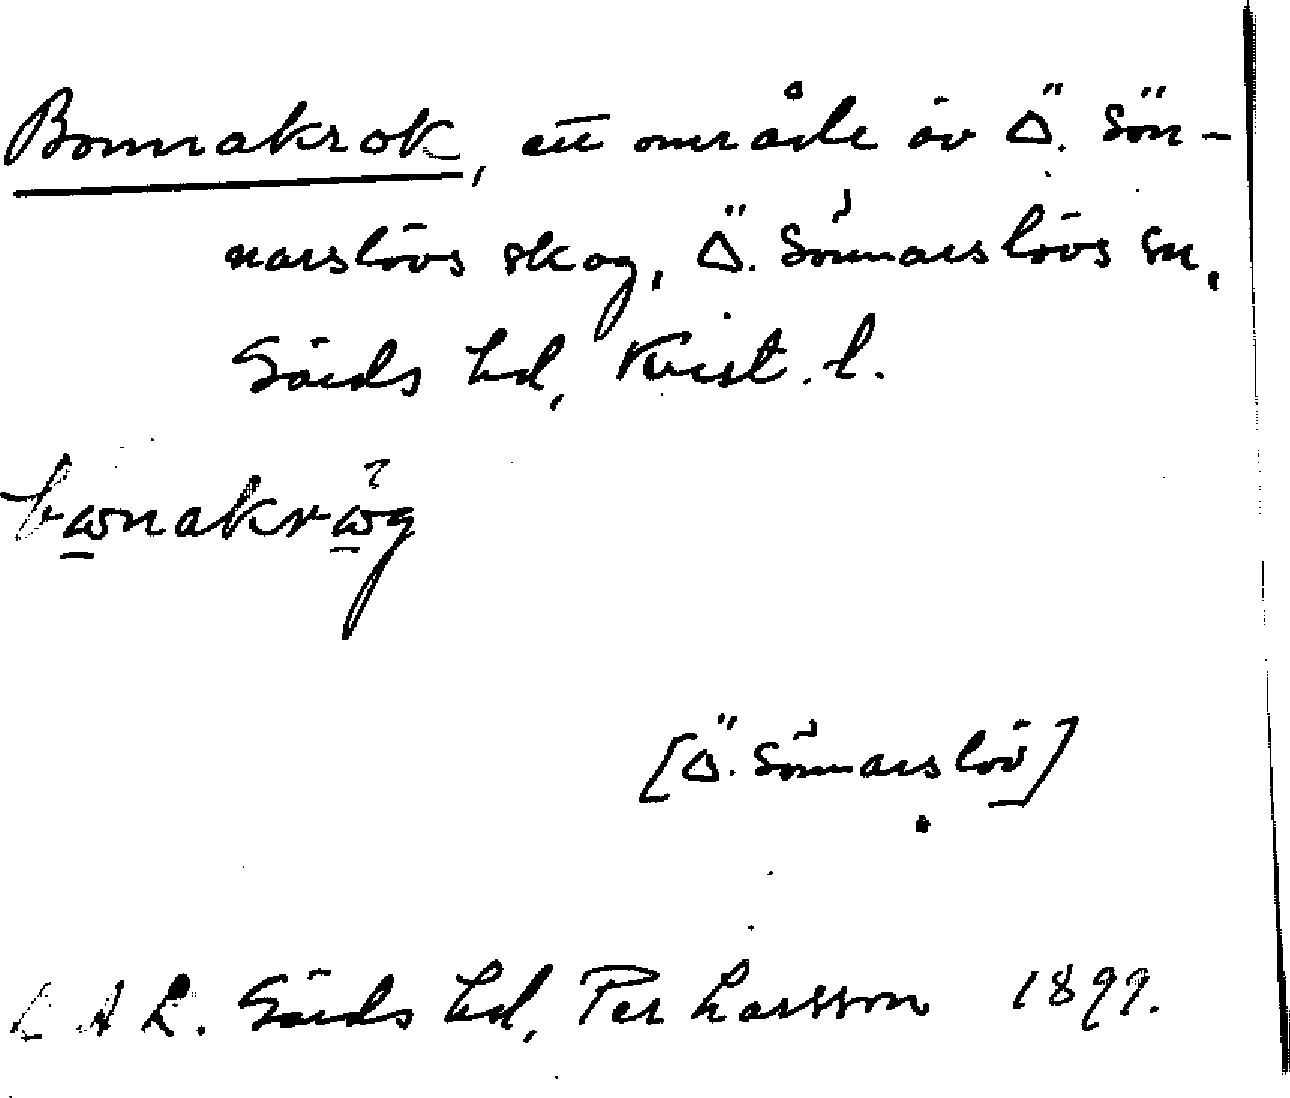 Bonnakrok, ett område av Ö. Sön-
narslövs skog, Ö. Sönnarslövs sn,
Gärds hd, Krist. l.
bωnakrωg
[Ö. Sönnarslöv]
L A L. Gärds hd, Per Larsson 1899.